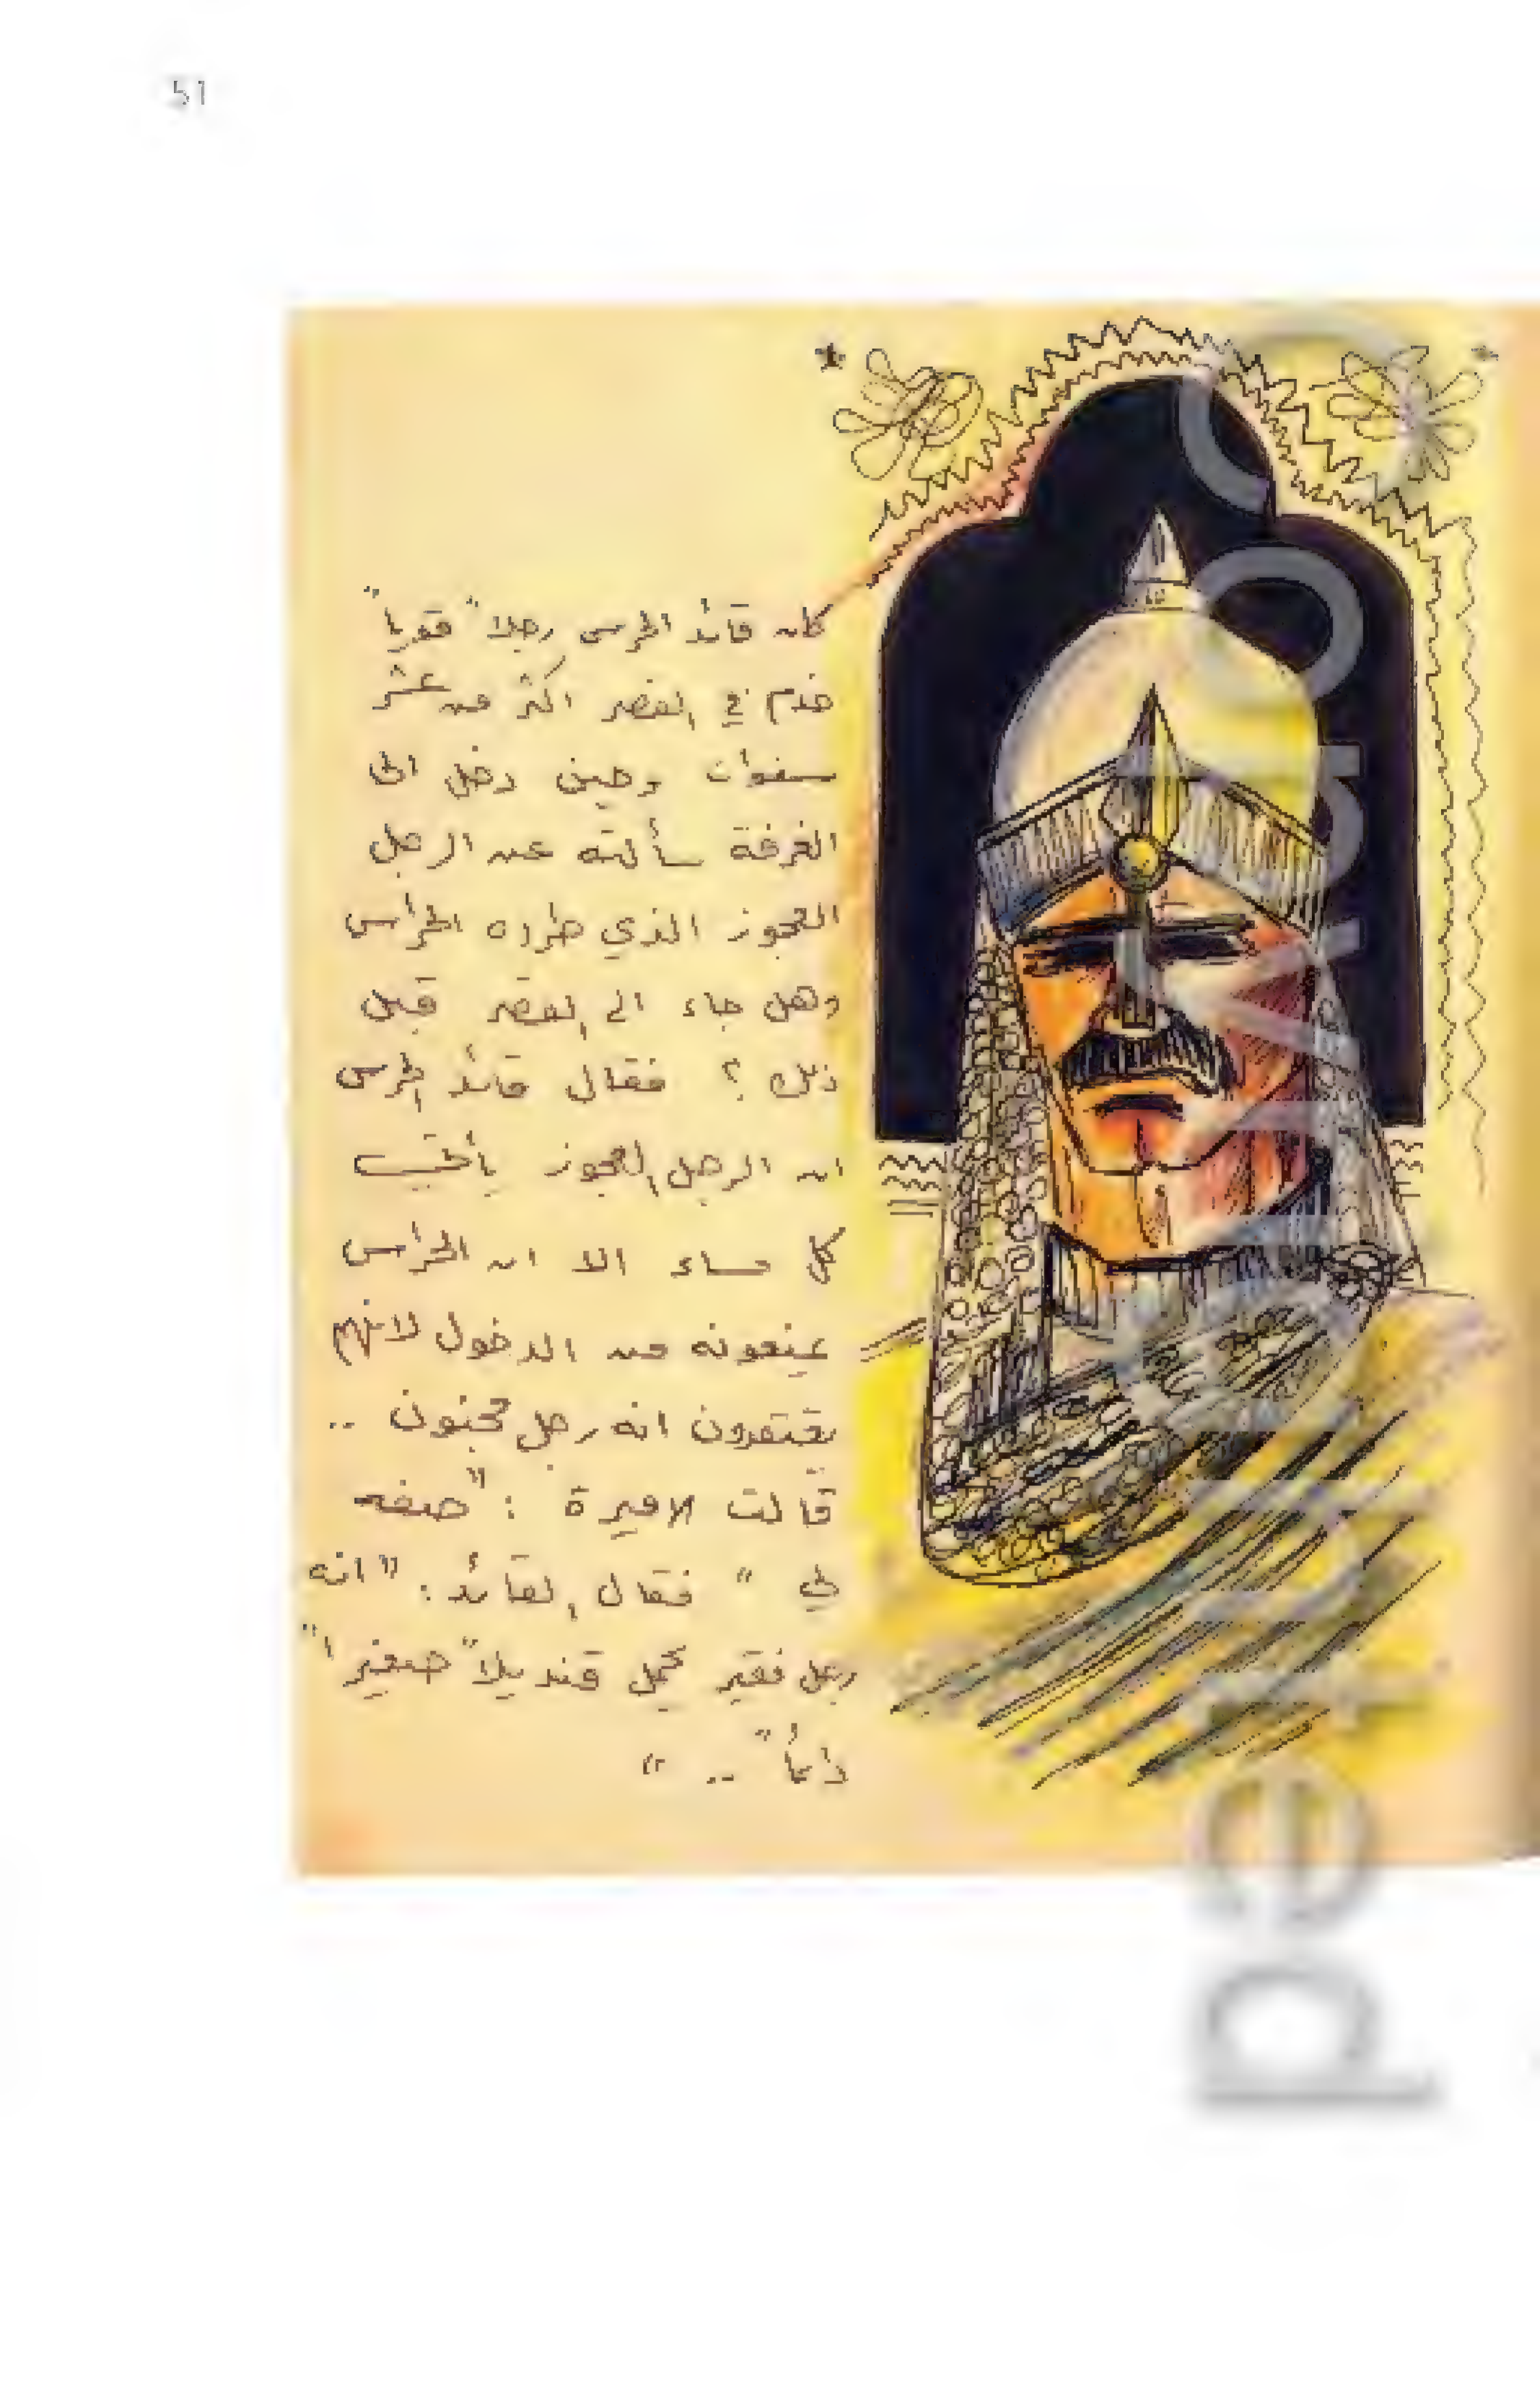 51
كان قائد الحرس رجلاً قوياً
خدم في القصر اكثر من عشر
سنوات وحين دخل الى
الغرفة سألته عن الرجل
العجوز الذي طرده الحراس
وهل جاء الى القصر قبل
ذلك ؟ فقال قائد الحرس
ان الرجل العجوز يأتي
كل مساء الا ان الحراس
يمنعونه من الدخول لانهم
يعتقدون انه رجل مجنون ..
قالت الاميرة : "صفه
لي " فقال القائد : " انه
رجل فقير يحمل قنديلاً صغيراً
دائماً .. "